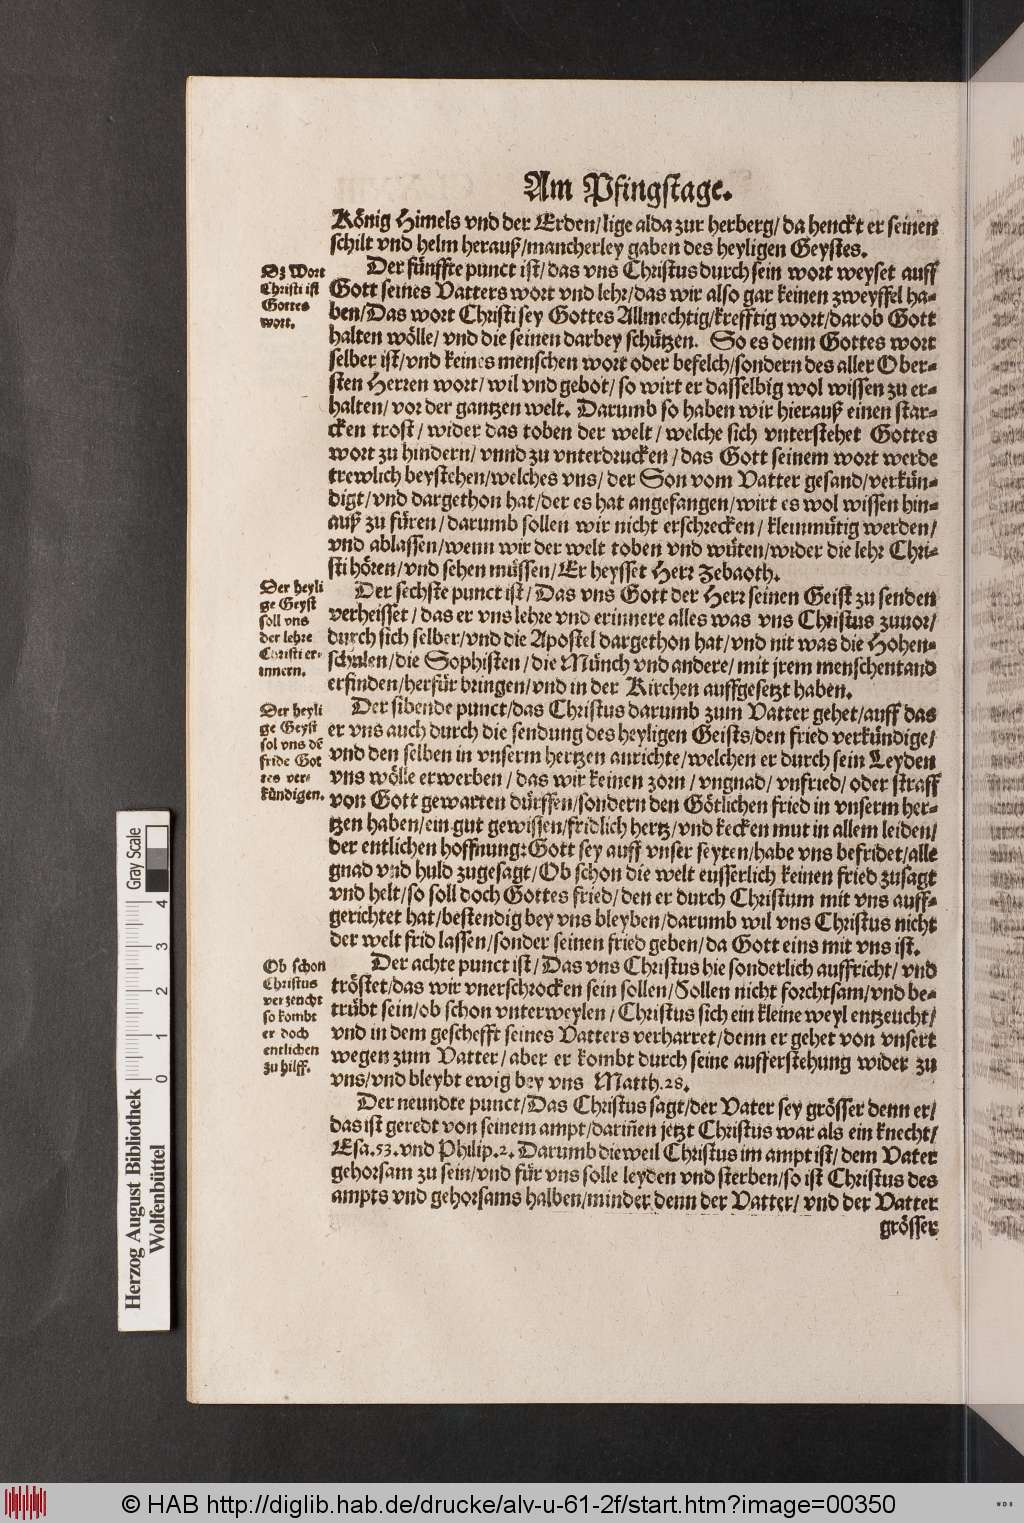 Am Pfingstage.
König Himels vnd der Erden/lige alda zur herberg/da henckt er seinen
schilt vnd helm herauß/mancherley gaben des heyligen Geystes.
Dz Wort
Christi ist
Gottes
wort.
Der fünffte punct ist/das vns Christus durch sein wort weyset auff
Gott seines Vatters wort vnd lehr/das wir also gar keinen zweyffel ha-
ben/Das wort Christi sey Gottes Allmechtig/krefftig wort/darob Gott
halten wölle/vnd die seinen darbey schützen. So es denn Gottes wort
selber ist/vnd keines menschen wort oder befelch/sondern des aller Ober-
sten Herren wort/wil vnd gebot/so wirt er dasselbig wol wissen zu er-
halten/vor der gantzen welt. Darumb so haben wir hierauß einen star-
cken trost/wider das toben der welt/welche sich vnterstehet Gottes
wort zu hindern/vnnd zu vnterdrucken/das Gott seinem wort werde
trewlich beystehen/welches vns/der Son vom Vatter gesand/verkün-
digt/vnd dargethon hat/der es hat angefangen/wirt es wol wissen hin-
auß zu füren/darumb sollen wir nicht erschrecken/kleinmütig werden/
vnd ablassen/wenn wir der welt toben vnd wüten/wider die lehr Chri-
sti hören/vnd sehen müssen/Er heysset Herr Zebaoth.
Der heyli
ge Geyst
soll vns
der lehre
Christi er-
innern.
Der sechste punct ist/Das vns Gott der Herr seinen Geist zu senden
verheisset/das er vns lehre vnd erinnere alles was vns Christus zuuor/
durch sich selber/vnd die Apostel dargethon hat/vnd nit was die Hohen-
schulen/die Sophisten/die Münch vnd andere/mit jrem menschentand
erfinden/herfür bringen/vnd in der Kirchen auffgesetzt haben.
Der heyli
ge Geyst
sol vns dē
fride Got
tes ver-
kündigen.
Der sibende punct/das Christus darumb zum Vatter gehet/auff das
er vns auch durch die sendung des heyligen Geists/den fried verkündige/
vnd den selben in vnserm hertzen anrichte/welchen er durch sein Leyden
vns wölle erwerben/das wir keinen zorn/vngnad/vnfried/oder straff
von Gott gewarten dürffen/sondern den Götlichen fried in vnserm her-
tzen haben/ein gut gewissen/fridlich hertz/vnd kecken mut in allem leiden/
der entlichen hoffnung: Gott sey auff vnser seyten/habe vns befridet/alle
gnad vnd huld zugesagt/Ob schon die welt eusserlich keinen fried zusagt
vnd helt/so soll doch Gottes fried/den er durch Christum mit vns auff-
gerichtet hat/bestendig bey vns bleyben/darumb wil vns Christus nicht
der welt frid lassen/sonder seinen fried geben/da Gott eins mit vns ist.
Ob schon
Christus
verzeucht
so kombt
er doch
entlichen
zu hilff.
Der achte punct ist/Das vns Christus hie sonderlich auffricht/vnd
tröstet/das wir vnerschrocken sein sollen/Sollen nicht forchtsam/vnd be-
trübt sein/ob schon vnterweylen/Christus sich ein kleine weyl entzeucht/
vnd in dem geschefft seines Vatters verharret/denn er gehet von vnsert
wegen zum Vatter/aber er kombt durch seine aufferstehung wider zu
vns/vnd bleybt ewig bey vns Matth.28.
Der neundte punct/Das Christus sagt/der Vater sey grösser denn er/
das ist geredt von seinem ampt/dariñen jetzt Christus war als ein knecht/
Esa.53.vnd Philip.2. Darumb dieweil Christus im ampt ist/dem Vater
gehorsam zu sein/vnd für vns solle leyden vnd sterben/so ist Christus des
ampts vnd gehorsams halben/minder denn der Vatter/vnd der Vatter
grösser
Gray Scale
0 1 2 3 4
Herzog August Bibliothek
Wolfenbüttel
© HAB http://diglib.hab.de/drucke/alv-u-61-2f/start.htm?image=00350
WDB